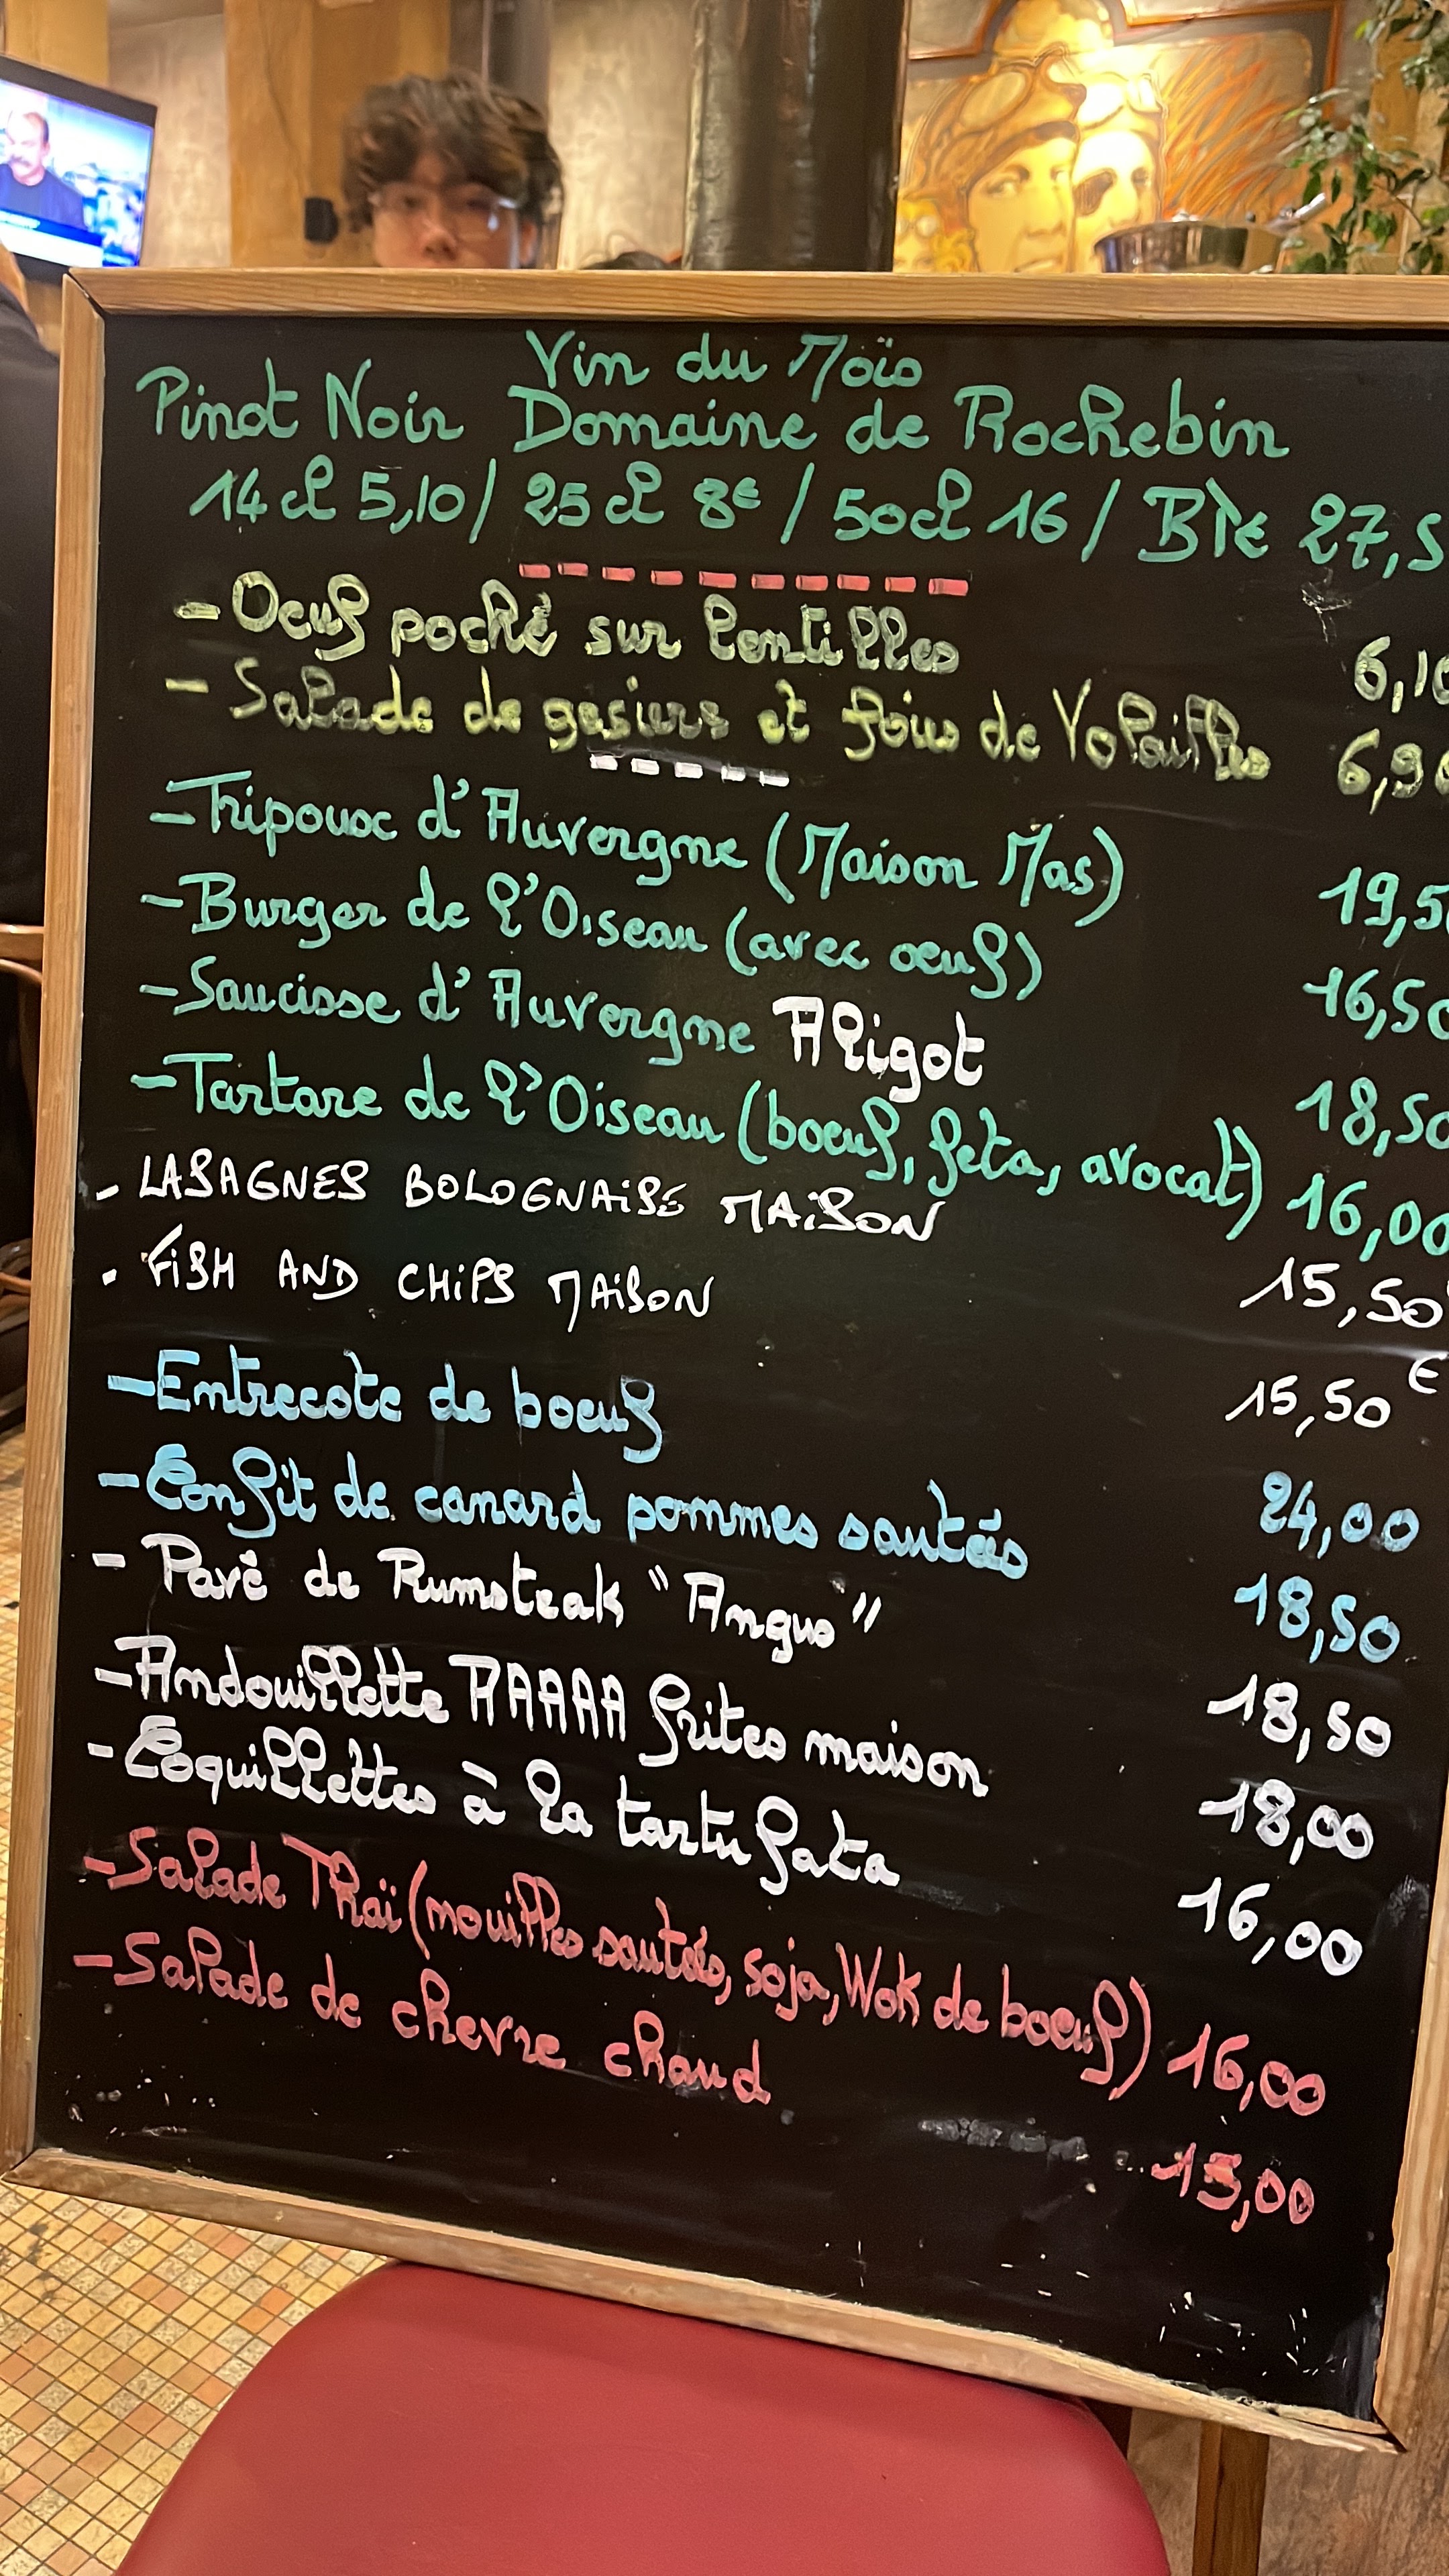 Vin du Moïs
Pinot Noir Domaine de Rochebin
14 cl 5,10 / 25 cl 8€ / 50cl 16 / Blle 27,5
- Oeuf poché sur lentilles 6,10
- Salade de gesiers et foies de Volailles 6,90
- Tripoux d'Auvergne (Maison Mas) 19,5
- Burger de l'Oiseau (avec oeuf) 16,50
- Saucisse d'Auvergne Aligot 18,50
- Tartare de l'Oiseau (boeuf, feta, avocat) 16,00
- LASAGNES BOLOGNAISE MAISON 15,50
. FISH AND CHIPS MAISON 15,50 €
- Entrecote de boeuf 24,00
- Confit de canard pommes sautées 18,50
- Pavé de Rumsteak "Angus" 18,50
- Andouillette AAAAA frites maison 18,00
- Coquillettes à la tartufata 16,00
- Salade Thaï (nouilles sautées, soja, Wok de boeuf) 16,00
- Salade de chevre chaud 15,00